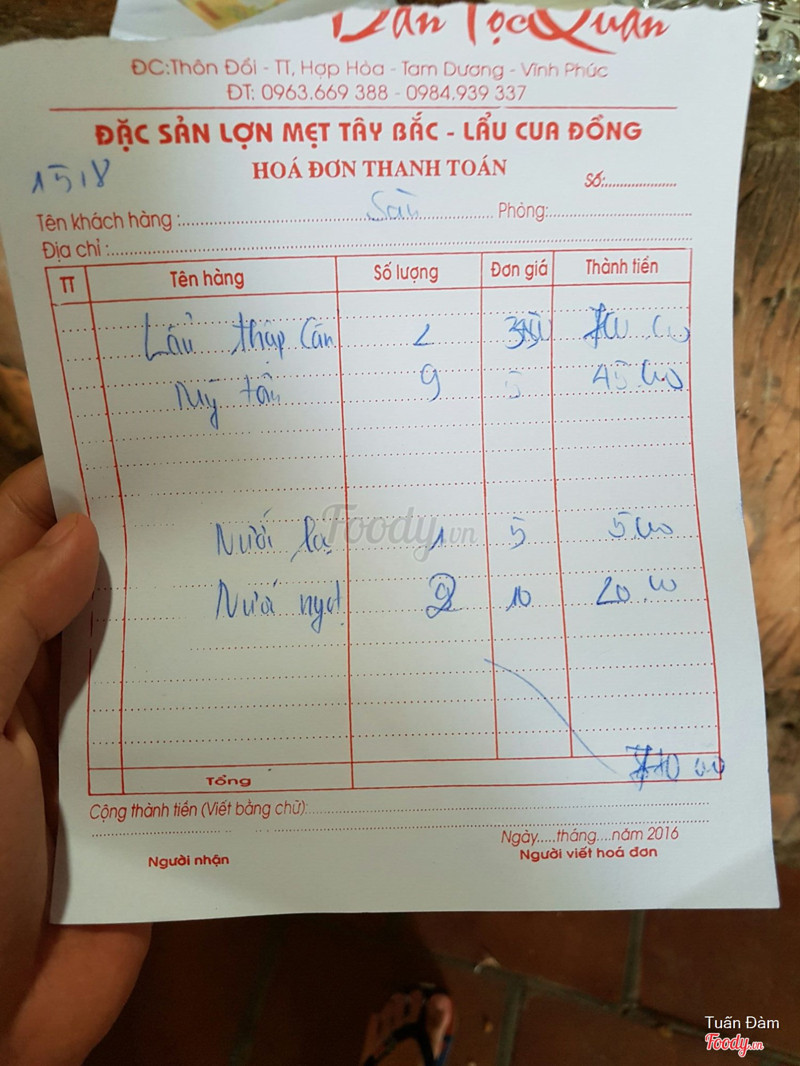 Dân Tộc Quán
ĐC:Thôn Đồi - TT, Hợp Hòa - Tam Dương - Vĩnh Phúc
ĐT: 0963.669 388 - 0984.939 337
ĐẶC SẢN LỢN MẸT TÂY BẮC - LẨU CUA ĐỒNG
HOÁ ĐƠN THANH TOÁN
Số:....................
15/8
Tên khách hàng :.......... Sàn .......... Phòng:..........
Địa chỉ :..........
TT Tên hàng Số lượng Đơn giá Thành tiền
Lẩu thập Cẩn 2 350 700.00
Mỹ tôm 9 5 45.00
Foody.vn
Nưới lọc 1 5 5.00
Nướ ngọt 2 10 20.00
Tổng 770 00
Cộng thành tiền (Viết bằng chữ):..........
Ngày.....tháng....năm 2016
Người nhận Người viết hoá đơn
Tuấn Đàm
Foody.vn